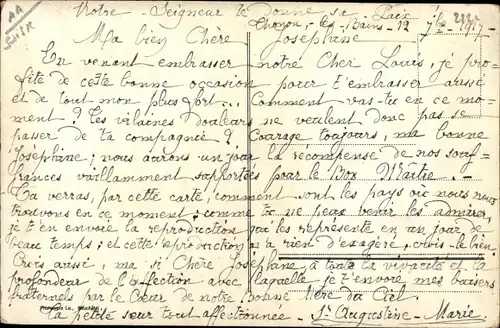 AA
SUIX
2225
Notre Seigneur te Donne sa Paix
Thonon-les-Bains - 12 7bre 1917
Ma bien Chère Joséphine
En venant embrasser notre Cher Louis, je pro-
fite de cette bonne occasion pour t'embrasser aussi
et de tout mon plus fort... Comment vas-tu en ce mo-
ment ? Les vilaines douleurs ne veulent donc pas se
passer de ta compagnie ? Courage toujours, ma bonne
Joséphine ; nous aurons un jour la récompense de nos souf-
frances vaillamment supportées pour le Bon Maître !-
Tu verras, par cette carte, comment sont les pays où nous nous
trouvons en ce moment ; comme tu ne peux venir les admirer,
je t'en envoie la reproduction qui les représente en un jour de
beau temps ; et cette reproduction n'a rien d'exagéré, crois-le bien.
Crois aussi, ma si Chère Joséphine, à toute la vivacité et la
profondeur de l'affection avec laquelle je t'envoie mes baisers
fraternels par le Cœur de notre Bonne Mère du Ciel.
Ta petite sœur tout affectionnée - Sr Augustine-Marie.